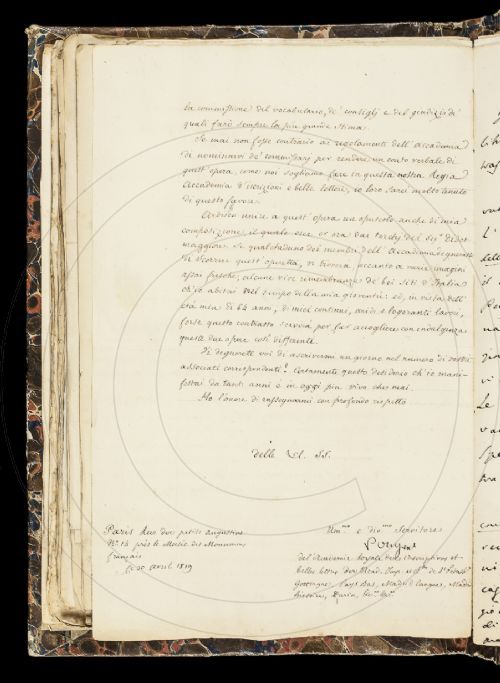 la commissione del vocabulario, de' consigli e del giudizio de'
quali farò sempre la più grande stima.
Se mai non fosse contrario ai regolamenti dell' Accademia
di nominarvi de' commissarj per rendere un conto verbale di
quest' opera, come noi sogliamo fare in questa nostra Regia
Accademia d'iscrizioni e belle lettere, io loro sarei molto tenuto
di questo favore.
Ardisco unire a quest' opera un opuscolo anche di mia
composizione, il quale esce or ora dai torchj del Sigr Didot
maggiore. Se qualcheduno dei membri dell' Accademia si
di scorrere quest' operetta, vi troverà accanto a varie imagini
assai fresche, alcune vive rimembranze de' bei siti d'Italia
ch'io abitai nel tempo della mia gioventù: ed, in vista dell'
età mia di 64 anni, di miei continui, aridi e logoranti lavori,
forse questo contrasto servirà per far accogliere con indulgenza
queste due opere così differenti.
Vi degnerete voi di ascrivermi un giorno nel numero di vostri
associati corrispondenti? Certamente questo desiderio ch'io mani-
festai da tanti anni è in oggi più vivo che mai.
Ho l'onore di rassegnarmi con profondo rispetto
delle VV. SS.
Paris Rue des petits augustins
No. 14 près le Musée des Monumens
français
ce 20 avril 1819
Ummo e divmo Servitore
Pougens
de l'Académie royale des inscriptions et
belles lettres, des Acad. Imp. et de St Petersb.
Gottingue, Pays Bas, Madrid